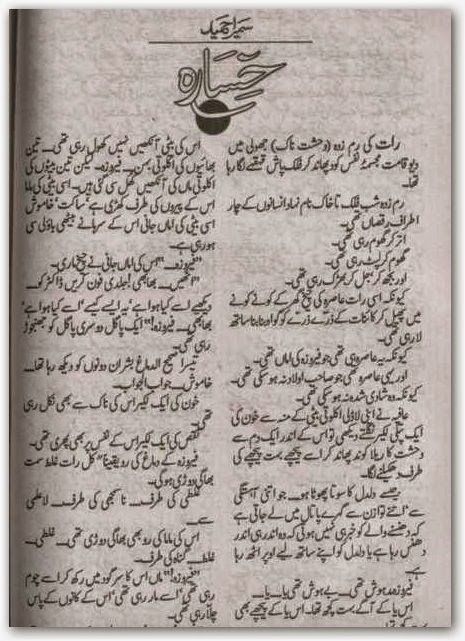 سمیرا حمید
خسارہ
رات کی رم زدہ (وحشت ناک) جھولی میں
دیو قامت مجسم نفس کو دیھاند کر فلک پاش قہقہے لگا رہا
تھا۔
رم زدہ شب فلک تا خاک نام نہاد انسانوں کے چار
اطراف رقصاں تھی۔
اتر کر گھوم رہی تھی۔
گھوم کر لپٹ رہی تھی۔
اور بجھ کر بجل کر بھڑک رہی تھی۔
کیونکہ اسی رات عاصرہ کی چیخ گھر کے کونے کونے
میں پھیل کر کائنات کے ذرے ذرے کو کو اپنا ساتھ
لا رہی تھی۔
کیونکہ یہ عاصرہ ہی تھی جو فیروزہ کی اماں تھی۔
اور یہی عاصرہ تھی جو صاحب اولاد نہ ہو سکی تھی۔
کیونکہ وہ شادی شدہ نہ ہو سکی تھی۔
عافیہ نے اپنی لاڈلی اکلوتی بیٹی کے منہ سے خون کی
ایک پتلی لکیر نکلتے دیکھی تو اس کے اندر ایک دم سے
وحشت کا ریلا کوند پھاند کر اسے پیچھے بہت پیچھے کی
طرف دھکیلنے لگا۔
جیسے دلدل کا سوتا پھوٹا ہو۔۔۔ جو اتنی آہستگی
سے اتنے توازن سے گہرے پاتال میں لے جاتی ہے
کہ دھنسنے والے کو خبر ہی نہیں ہوتی کہ وہ اندر ہی اندر
دھنس رہا ہے یا دلدل کو اپنے ساتھ لیے اوپر اٹھ رہا
ہے۔
فیروزہ مدہوش تھی۔۔۔ بے ہوش تھی یا۔۔۔ یا۔۔۔
اس یا کے آگے بہت کچھ تھا۔ اس یا کے پیچھے بھی
اس کی بیٹی آنکھیں نہیں کھول رہی تھی۔۔۔ تین
بھائیوں کی اکلوتی بہن۔۔۔ فیروزہ۔ لیکن تین بیٹوں کی
اکلوتی ماں کی آنکھیں کھل سی گئی ہیں۔ اسی بیٹی کی ماما
اس کے پیروں کی طرف کھڑی ہے، ساکت، خاموش
اسی بیٹی کی اماں جانی اس کے سرہانے بیٹھی باؤلی سی
ہو رہی ہے۔
"فیروزہ۔۔۔" اس کی اماں جانی نے چیخ ماری۔
"اٹھیں۔۔۔ بھابھی! جلدی فون کریں ڈاکٹر کو۔۔۔
دیکھیے اسے کیا ہوا ہے، یہ ایسے کیسے، اسے کیا ہوا ہے
بھابھی۔۔۔ فیروزہ!" ایک پاگل دوسری پاگل کو جھنجوڑ
رہی تھی۔
تیسرا صحیح الدماغ بشر ان دونوں کو دیکھ رہا تھا۔۔۔
خاموش۔۔۔ جواب الجواب۔
خون کی ایک لکیر اس کی ناک سے بھی نکل رہی
تھی۔
نقص کی ایک لکیر اس کے نفس پر بھی پھری تھی۔
فیروزہ کے دماغ کی رو یقیناً" کل رات غلط سمت
بھاگی دوڑی ہوگی۔
غلطی کی طرف۔۔۔ نا سمجھی کی طرف۔۔۔ لاعلمی
سے۔
اس کی ماما کی رو بھی بھاگی دوڑی تھی۔۔۔ غلطی۔۔۔
غلط۔۔۔ گناہ کی طرف۔
"فیروزہ!" ماں اس کا سر گود میں رکھ کر اسے چوم
رہی تھی، اسے مار رہی تھی، اس کے کانوں کے پاس
چلا رہی تھی۔